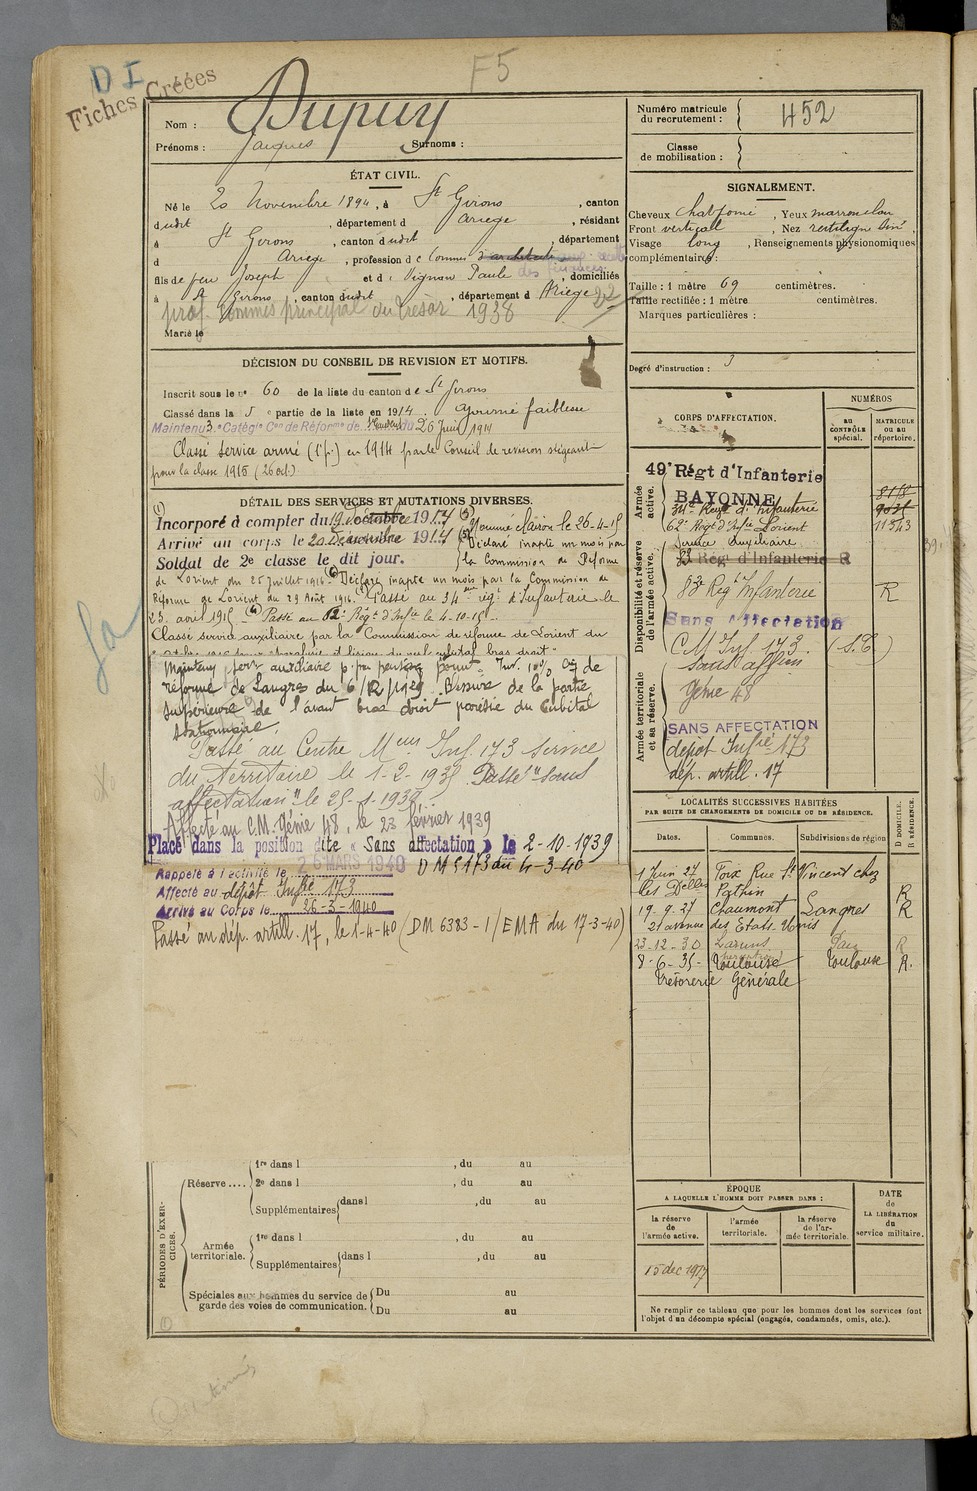 D I
Fiches Créées
F5
Nom : Dupuy
Prénoms : Jacques Surnoms :
Numéro matricule du recrutement : 452
Classe de mobilisation :
ÉTAT CIVIL.
Né le 20 Novembre 1894, à St Girons, canton
dudit, département d Ariège, résidant
à St Girons, canton dudit, département
d Ariège, profession de Commis d'architecte
des finances
fils de feu Joseph et de Vignon Paule, domiciliés
à St Girons, canton dudit, département d Ariège
prof. Commes principal du Trésor 1938
22
Marié le
SIGNALEMENT.
Cheveux chat foncé, Yeux marron clair
Front vertical, Nez rectiligne
Visage long, Renseignements physionomiques
complémentaires :
Taille : 1 mètre 69 centimètres.
Taille rectifiée : 1 mètre centimètres.
Marques particulières :
Degré d'instruction : 3
DÉCISION DU CONSEIL DE REVISION ET MOTIFS.
Inscrit sous le no 60 de la liste du canton de St Girons
Classé dans la 5 e partie de la liste en 1914. Ajourné faiblesse
Maintenu 3e Catégie Con de Réforme de du 26 juin 1914
Classé service armé (1e p.) en 1914 par le Conseil de revision siégeant
pour la classe 1915 (26 oct.)
DÉTAIL DES SERVICES ET MUTATIONS DIVERSES.
Incorporé à compter du 19 octobre 1914
Arrivé au corps le 20 1914
Soldat de 2e classe le dit jour.
Nommé clairon le 26-4-15
Déclaré inapte un mois par
la Commission de Réforme
de Lorient du 25 juillet 1916. Déclaré inapte un mois par la Commission de
Réforme de Lorient du 29 Août 1916. Passé au 34me régt d'Infanterie le
23 avril 1915 Passé au 62e Régt d'Infie le 4-10-15.
Classé service auxiliaire par la Commission de réforme de Lorient du
Maintenu serv auxiliaire p. pon Inv. 10% de
réforme de Langres du 6/12/1929. Blessure de la partie
supérieure de l'avant bras droit parésie du cubital
stationnaire.
Passé au Centre Meur Inf. 173 Service
du territoire le 1-2-1935 Passé "sans
affectation" le 25-1-1939.
Affecté au C.M. Génie 48, le 23 février 1939
Placé dans la position dite « Sans affectation » le 2-10-1939
Rappelé à l'activité le 26 MARS 1940 DM 5173 du 4-3-40
Affecté au dépôt Infie 173
Arrivé au Corps le 26-3-1940
Passé au dép. artill. 17, le 1-4-40 (DM 6383-1/EMA du 17-3-40)
CORPS D'AFFECTATION.
NUMÉROS
AU CONTRÔLE spécial.
MATRICULE ou au répertoire.
Armée active.
49e Régt d'Infanterie
BAYONNE
34e Régt d'Infanterie
62e Régt d'Infie Lorient
11343
Service Auxiliaire
Disponibilité et réserve de l'armée active.
83 Régt d'Infanterie R
83e Rég Infanterie R
Sans affectation
CM Inf. 173. (S.T)
Sans affon
Génie 48
Armée territoriale et sa réserve.
SANS AFFECTATION
dépôt Infie 173
dép. artill. 17
LOCALITÉS SUCCESSIVES HABITÉES
PAR SUITE DE CHANGEMENTS DE DOMICILE OU DE RÉSIDENCE.
Dates. Communes. Subdivisions de région
D DOMICILE. R RÉSIDENCE.
1 Juin 27 Foix Rue St Vincent chez
les Delles Pathin R
19-9-27 Chaumont Langres R
21 avenue des Etats-Unis
23-12-30 Laruns Pau R
8-6-35 Toulouse Toulouse R.
Trésorerie Générale
PÉRIODES D'EXERCICES.
Réserve....
1re dans l , du au
2e dans l , du au
Supplémentaires dans l , du au
Armée territoriale.
1re dans l , du au
Supplémentaires dans l , du au
Spéciales aux hommes du service de garde des voies de communication.
Du au
Du au
ÉPOQUE
A LAQUELLE L'HOMME DOIT PASSER DANS :
la réserve de l'armée active.
l'armée territoriale.
la réserve de l'armée territoriale.
DATE de LA LIBÉRATION du service militaire.
15 dec 1917
Ne remplir ce tableau que pour les hommes dont les services font
l'objet d'un décompte spécial (engagés, condamnés, omis, etc.).